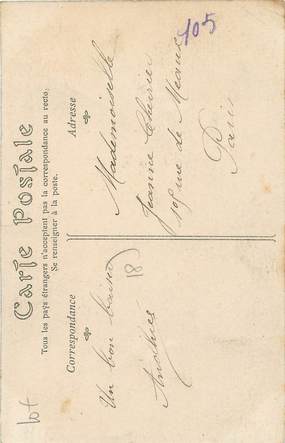 Carte Postale
Tous les pays étrangers n'acceptent pas la correspondance au recto.
Se renseigner à la poste.
Correspondance
Adresse
Un bon baiser
18
Mademoiselle
Jeanne
rue de Meaux
Paris
105
lot